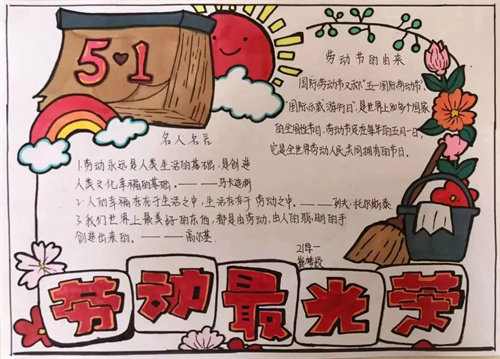 5♥1
劳动节的由来
国际劳动节又称"五一国际劳动节",
"国际示威游行日",是世界上80多个国家
的全国性节日,劳动节定在每年的五月一日,
它是全世界劳动人民共同拥有的节日。
名人名言
1.劳动永远是人类生活的基础,是创造
人类文化幸福的基础。———马卡连柯
2.人的幸福存在于生活之中,生活存在于劳动之中。———列夫·托尔斯泰
3.我们世界上最美好的东西,都是由劳动、由人的聪明的手
创造出来的。———高尔基
劳动最光荣